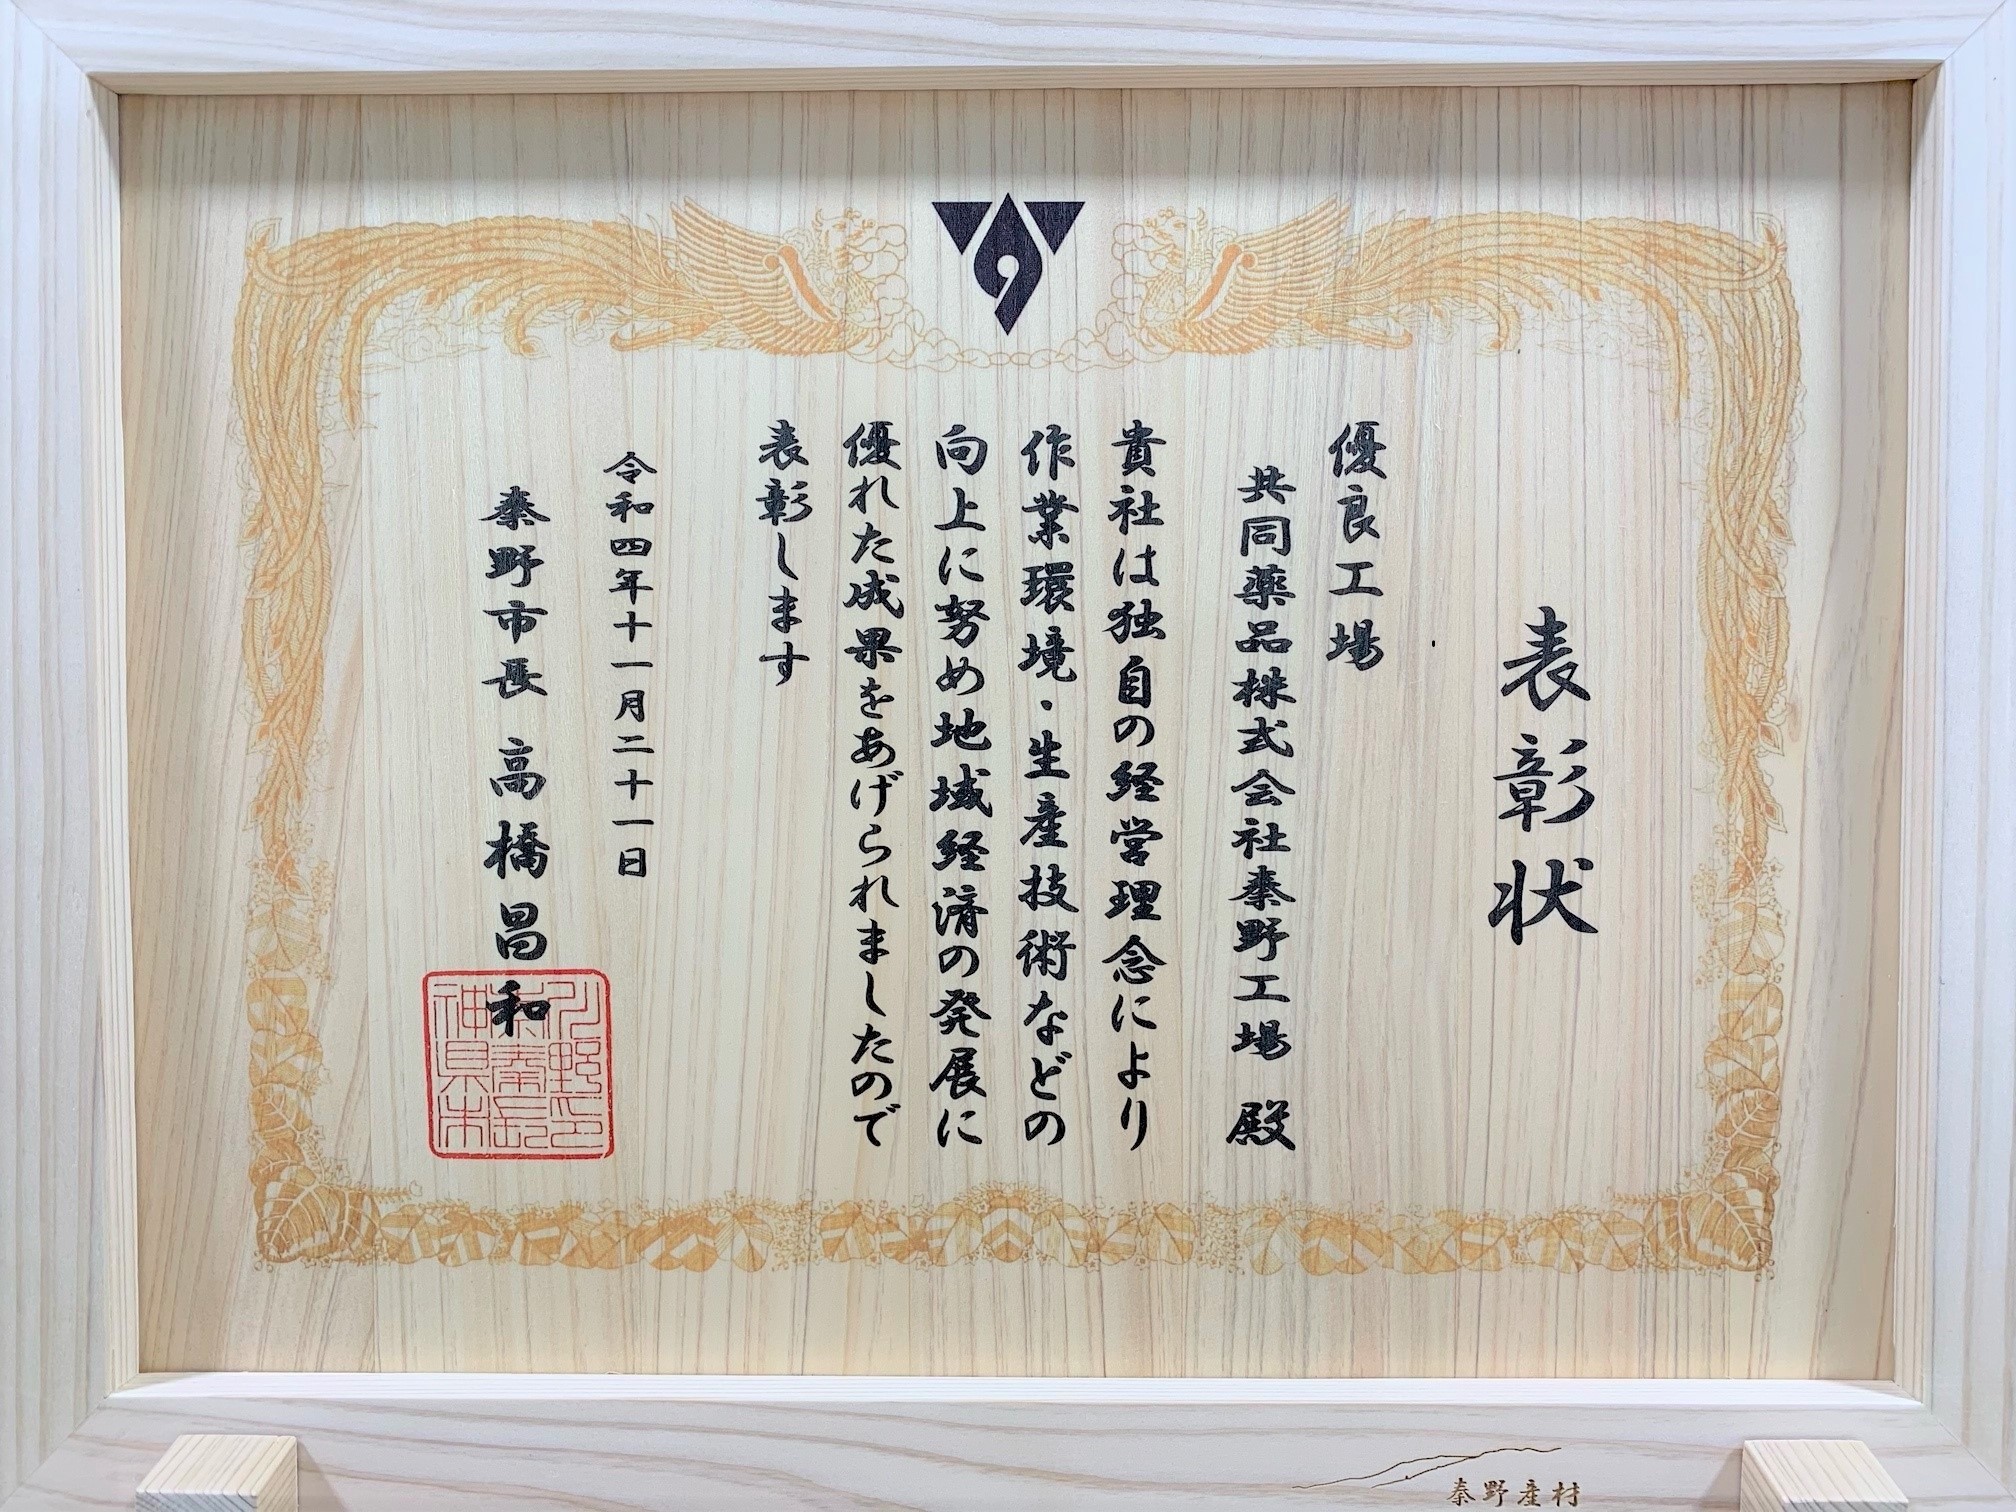 表彰状
優良工場
共同薬品株式会社秦野工場 殿
貴社は独自の経営理念により
作業環境・生産技術などの
向上に努め地域経済の発展に
優れた成果をあげられましたので
表彰します
令和四年十一月二十一日
秦野市長 高橋昌和
秦野産材